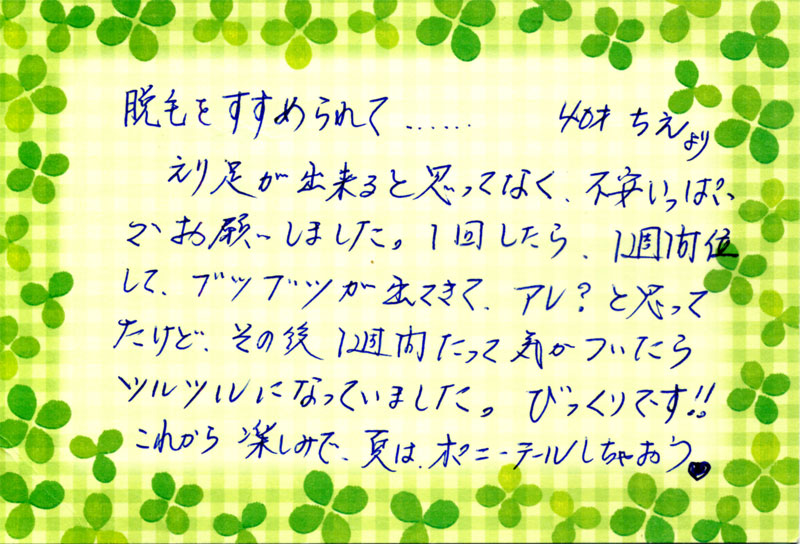 脱毛をすすめられて…… 40才 ちえより
えり足が出来ると思ってなく、不安いっぱい
でお願いしました。1回したら、1週間位
して、ブツブツが出てきて、アレ？と思って
たけど、その後1週間たって気がついたら
ツルツルになっていました。びっくりです!!
これから楽しみで、夏は、ポニーテールしちゃおう♥